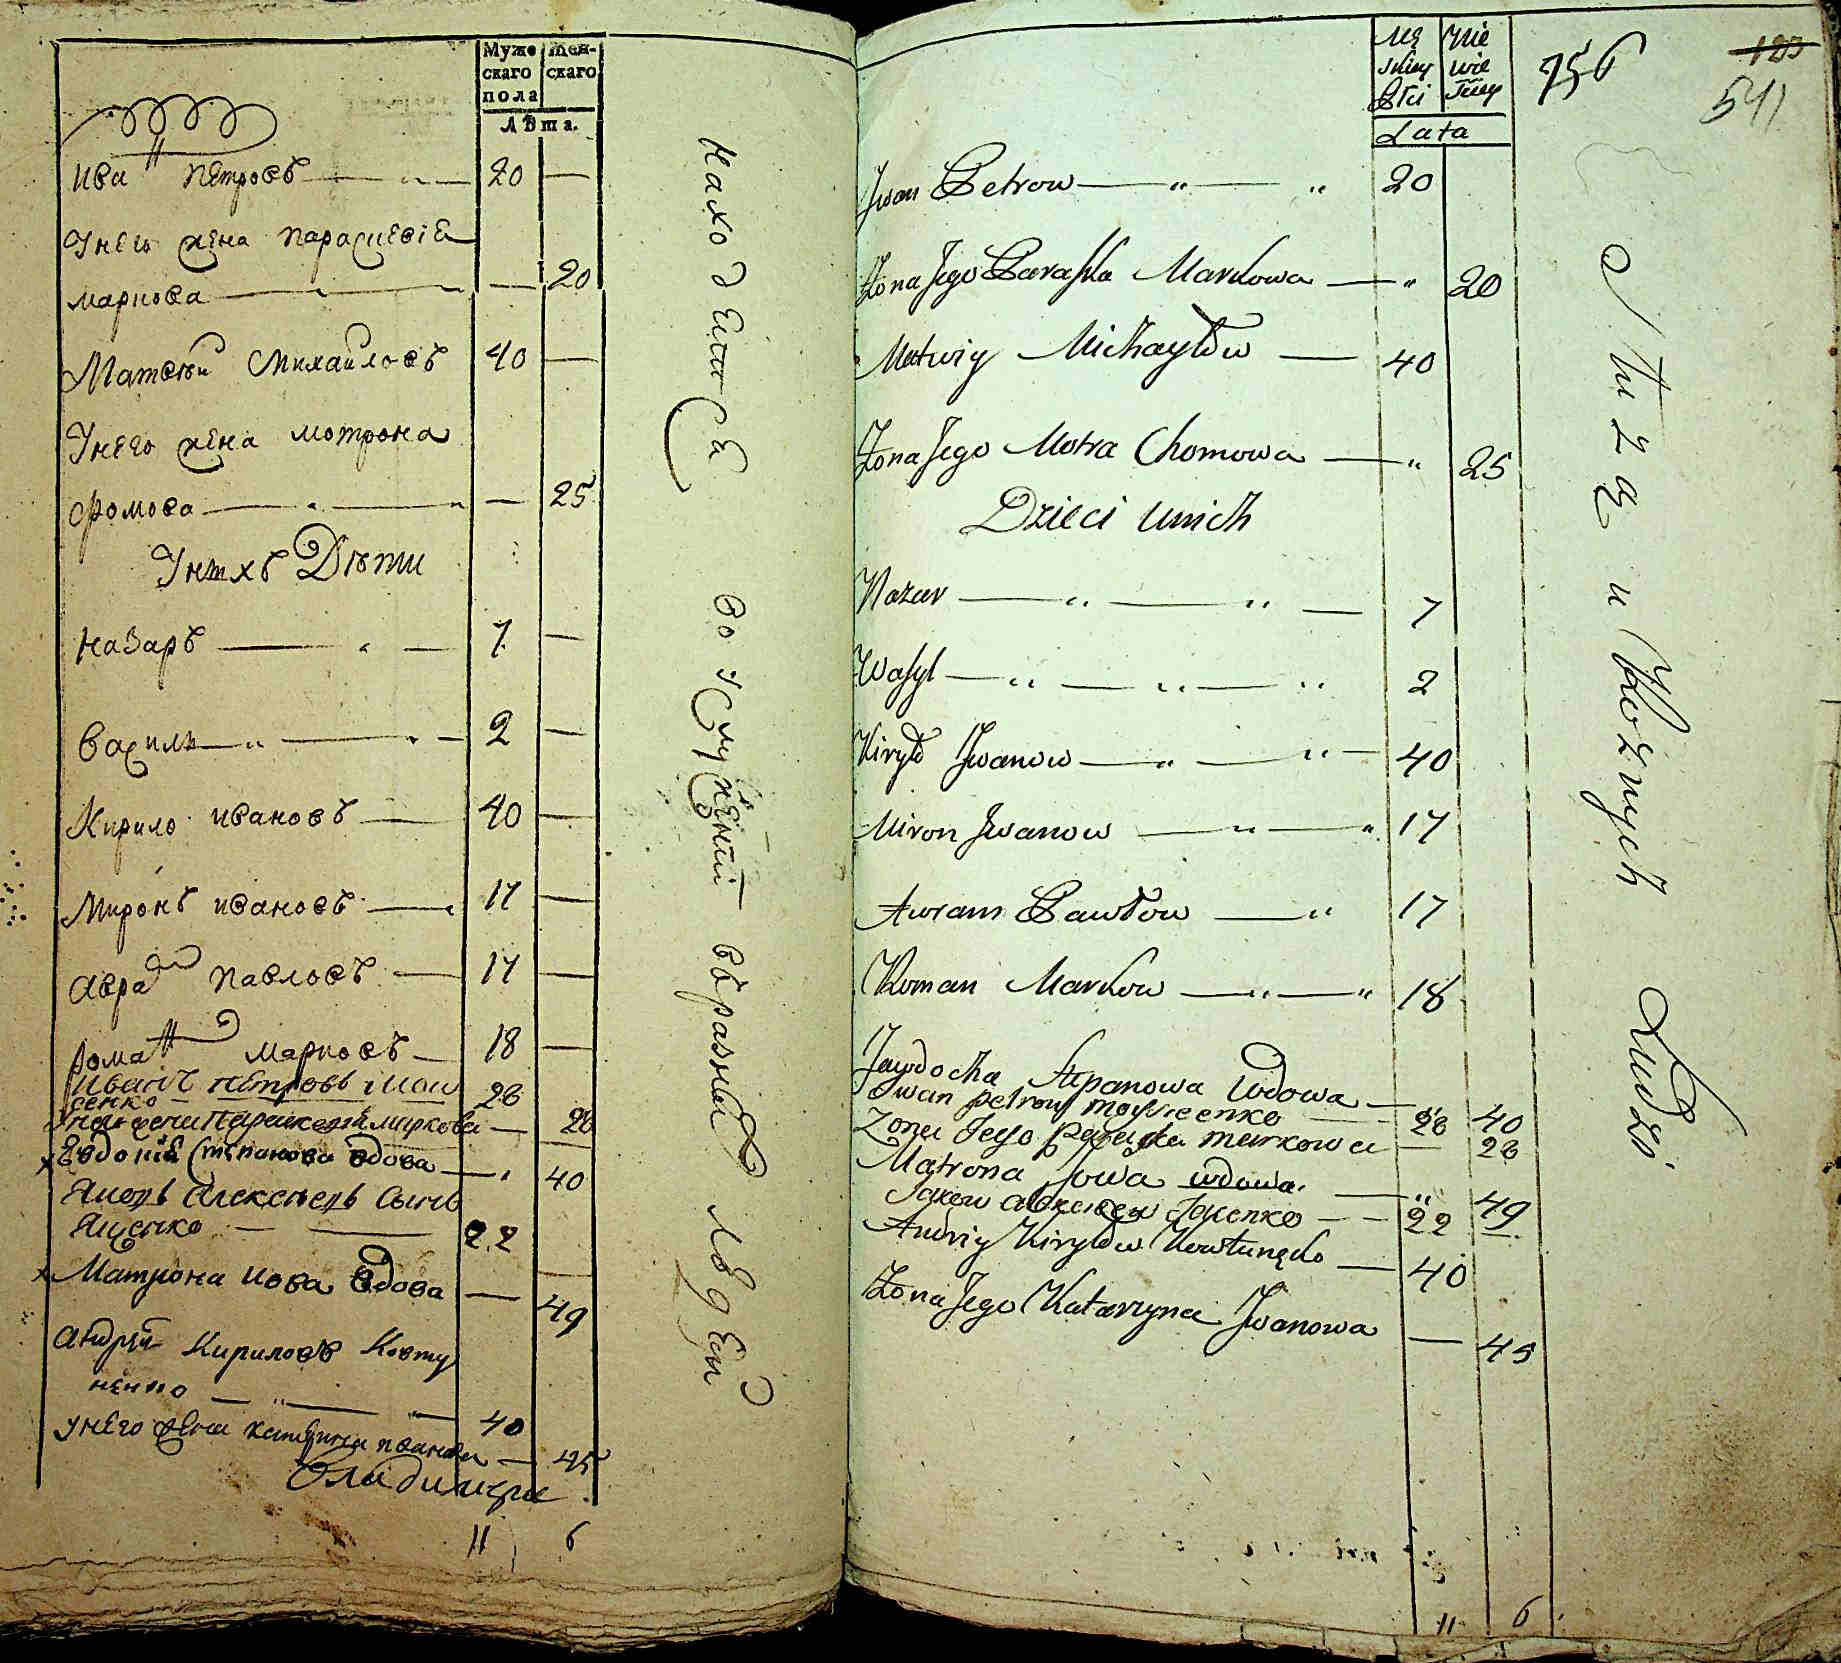 Муже
скаго
пола
Жен-
скаго
Лѣта.
Иванъ Петровъ 20
Унего жена Параскевія
Маркова 20
Матвѣй Михайловъ 40
Унего жена Мотрона
Фомова 25
Унихъ Дѣти
Назаръ 7
Василь 2
Кирило Ивановъ 40
Миронъ Ивановъ 17
Аврам Павловъ 17
Роман Марковъ 18
Иванъ Петровъ Мои
сенко 28
Жена Параскевія Маркова 28
Евдокія Степанова вдова 40
Яковъ Алексѣевъ сынъ
Яценко 22
Матрона Иова вдова 49
Андрей Кириловъ Ковту
ненко 40
Унего жена Катерина Иванова 45
11 6
находящиеся во услуженіи вразныхъ людей
Mę
skiey
Płci
Nie
wie
sciey
Lata
756
183
541
Iwan Petrow 20
Żona Jego Paraska Markowa 20
Matwiy Michayłow 40
Żona Jego Motra Chomowa 25
Dzieci u nich
Nazar 7
Wasyl 2
Kiryło Iwanow 40
Miron Iwanow 17
Awram Pawłow 17
Roman Markow 18
Jawdocha Stepanowa wdowa 40
Iwan Petrow Moyseenko 28
Żona Jego Paraska Markowa 28
Matrona Jowa wdowa 49
Jakow Alexeew Jacenko 22
Andriy Kiryłow Kowtunenko 40
Żona Jego Katarzyna Iwanowa 45
11 6
Służą u Różnych Ludzi